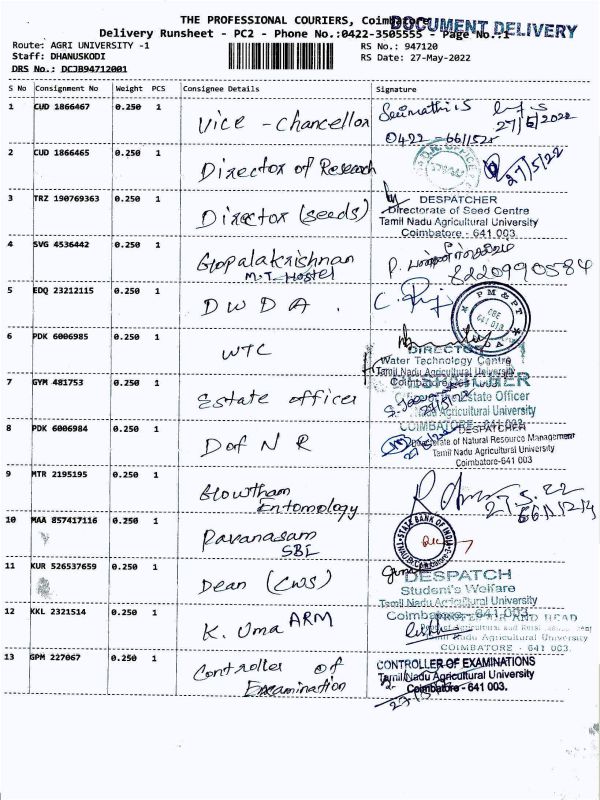 THE PROFESSIONAL COURIERS, Coimbatore
DOCUMENT DELIVERY
Delivery Runsheet - PC2 - Phone No.:0422-3505555 - Page No.:1
Route: AGRI UNIVERSITY -1
RS No.: 947120
Staff: DHANUSKODI
RS Date: 27-May-2022
DRS No.: DCJB94712001
S No Consignment No Weight PCS Consignee Details Signature
1 CUD 1866467 0.250 1 Vice - Chancellor
27/5/2022
0422 - 6611521
2 CUD 1866465 0.250 1 Director of Research
27/5/22
3 TRZ 190769363 0.250 1 Director (seeds)
DESPATCHER
Directorate of Seed Centre
Tamil Nadu Agricultural University
Coimbatore - 641 003.
4 SVG 4536442 0.250 1 Gopalakrishnan
M.T. Hostel
8220990584
5 EDQ 23212115 0.250 1 DWDA.
PM & PT
CBE
641 013
6 PDK 6006985 0.250 1 WTC
DIRECTOR
Water Technology Centre
Tamil Nadu Agricultural University
7 GYM 481753 0.250 1 Estate officer
DESPATCHER
Estate Officer
Agricultural University
8 PDK 6006984 0.250 1 D of N R
DESPATCHER
Directorate of Natural Resource Management
Tamil Nadu Agricultural University
Coimbatore-641 003
9 MTR 2195195 0.250 1 Gowtham
Entomology
27.5.22
10 MAA 857417116 0.250 1 Pavanasam
SBI
STATE BANK OF INDIA
11 KUR 526537659 0.250 1 Dean (CWS)
DESPATCH
Student's Welfare
Tamil Nadu Agricultural University
Coimbatore - 641 003
12 KKL 2321514 0.250 1 K. Uma ARM
PROFESSOR AND HEAD
Tamil Nadu Agricultural University
COIMBATORE - 641 003.
13 GPM 227067 0.250 1 Controller of
Examination
CONTROLLER OF EXAMINATIONS
Tamil Nadu Agricultural University
Coimbatore - 641 003.